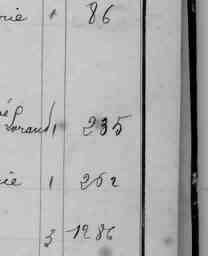 rie 1 86
é
Durand 1 235
rie 1 262
3 1286